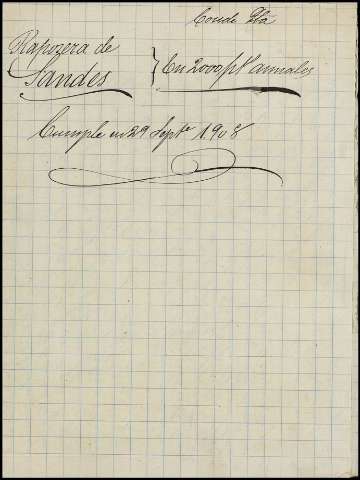 Conde
Rapozera de
Sandes } En 2000 pts anuales
Cumple en 29 Septe 1.908